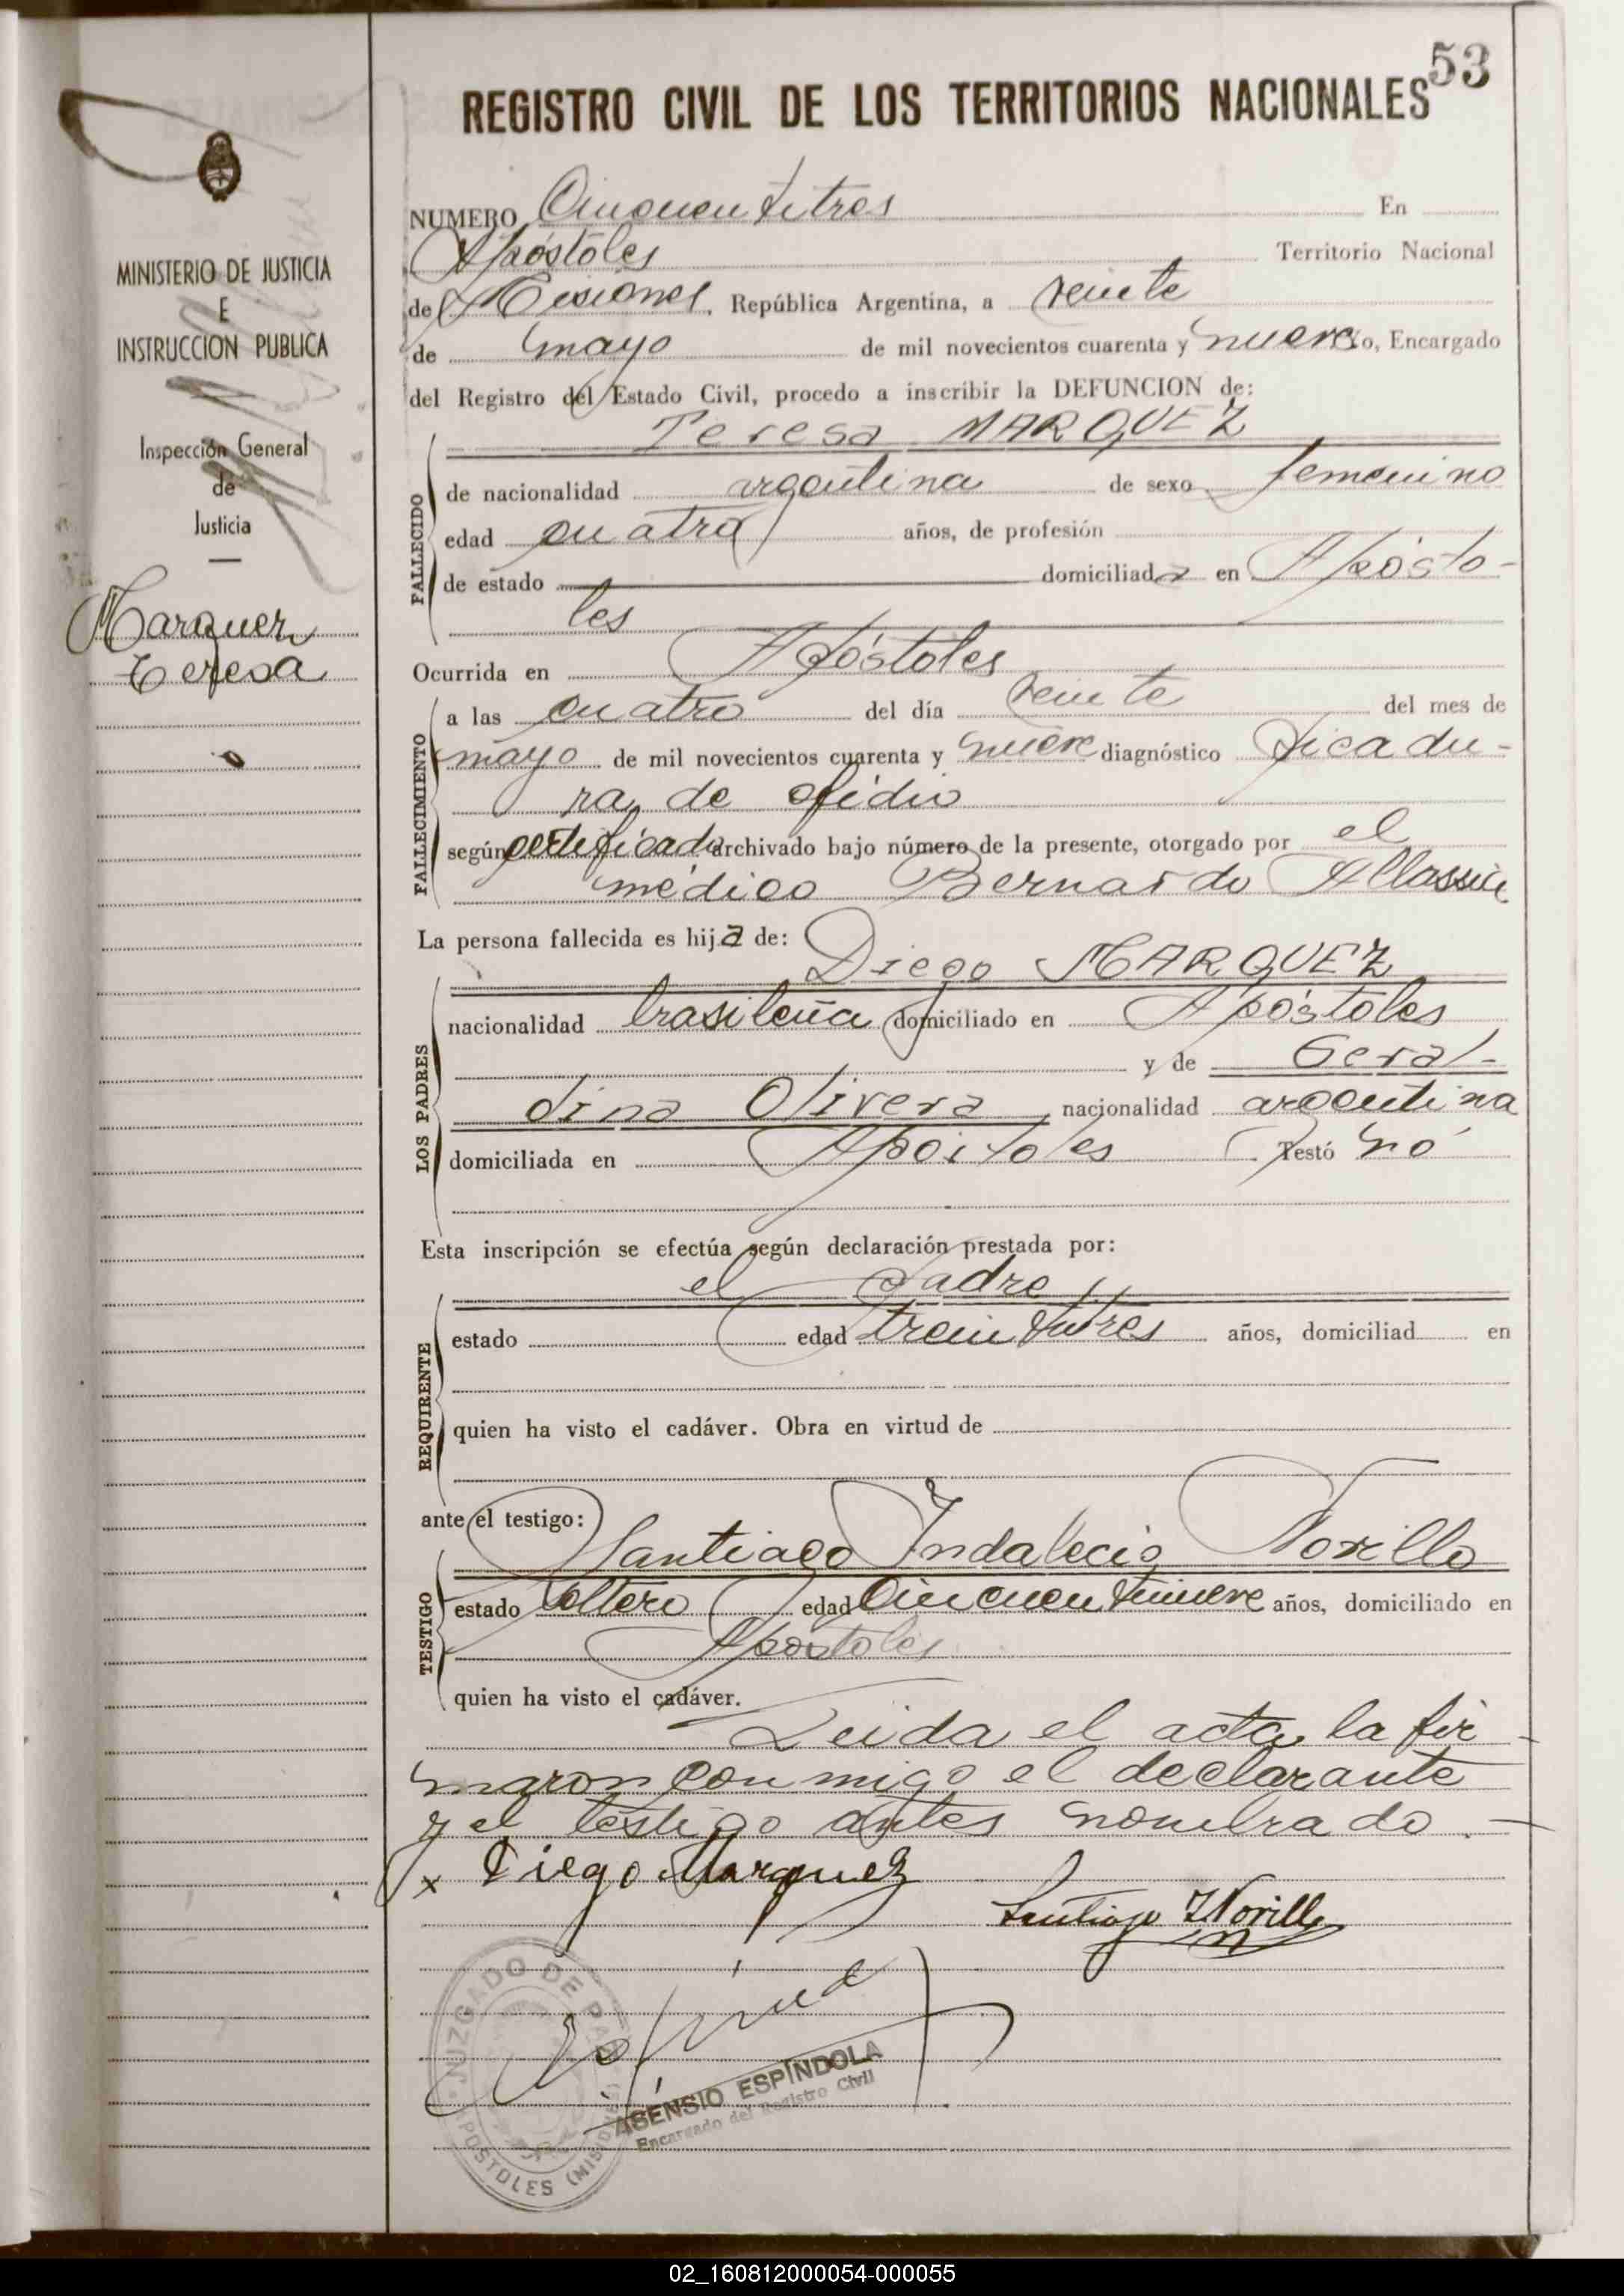 53
REGISTRO CIVIL DE LOS TERRITORIOS NACIONALES
MINISTERIO DE JUSTICIA
E
INSTRUCCION PUBLICA
Inspección General
de
Justicia
Marquez
Teresa
NUMERO Cincuentitres En
Apóstoles Territorio Nacional
de Misiones, República Argentina, a veinte
de mayo de mil novecientos cuarenta y nueve Yo, Encargado
del Registro del Estado Civil, procedo a inscribir la DEFUNCION de:
Teresa MARQUEZ
FALLECIDO
de nacionalidad argentina de sexo femenino
edad cuatro años, de profesión
de estado domiciliada en Apósto-
les
Ocurrida en Apóstoles
FALLECIMIENTO
a las cuatro del día veinte del mes de
mayo de mil novecientos cuarenta y nueve diagnóstico Picadu-
ra de ofidio
según certificado archivado bajo número de la presente, otorgado por el
médico Bernardo
La persona fallecida es hija de:
Diego MARQUEZ
LOS PADRES
nacionalidad brasileña domiciliado en Apóstoles
y de Geral-
dina Olivera nacionalidad argentina
domiciliada en Apóstoles Testó no
Esta inscripción se efectúa según declaración prestada por:
el padre
REQUIRENTE
estado edad treintitres años, domiciliad en
quien ha visto el cadáver. Obra en virtud de
ante el testigo:
Santiago Indalecio Norillo
TESTIGO
estado soltero edad cincuentinueve años, domiciliado en
Apóstoles
quien ha visto el cadáver.
Leida el acta la fir-
maron conmigo el declarante
y el testigo antes nombrado.-
x Diego Marquez
Santiago I Norillo
JUZGADO DE PAZ
APOSTOLES (MISIONES)
ASENSIO ESPINDOLA
Encargado del Registro Civil
02_160812000054-000055